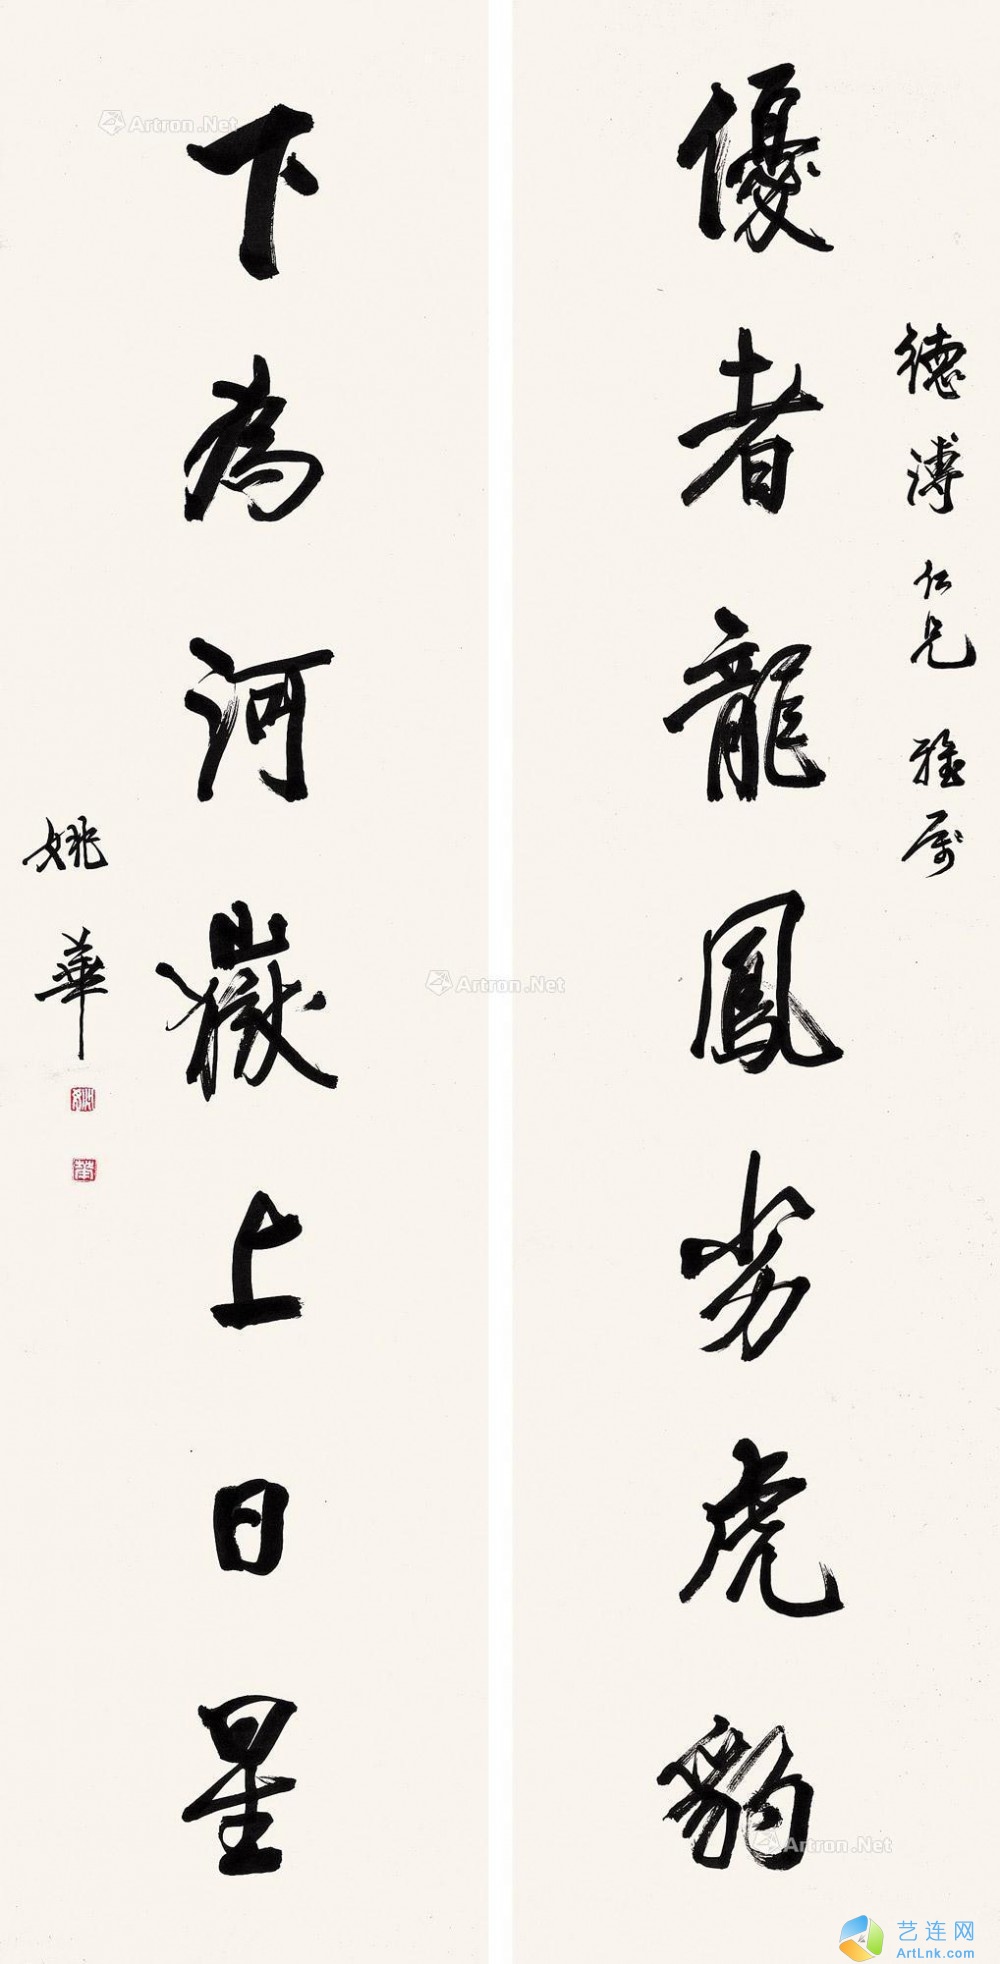 德溥仁兄雅属
優者龍鳳劣虎豹
下為河嶽上日星
姚華
姚
華
Artron.Net
Artron.Net
Artron.Net
艺连网
ArtLnk.com